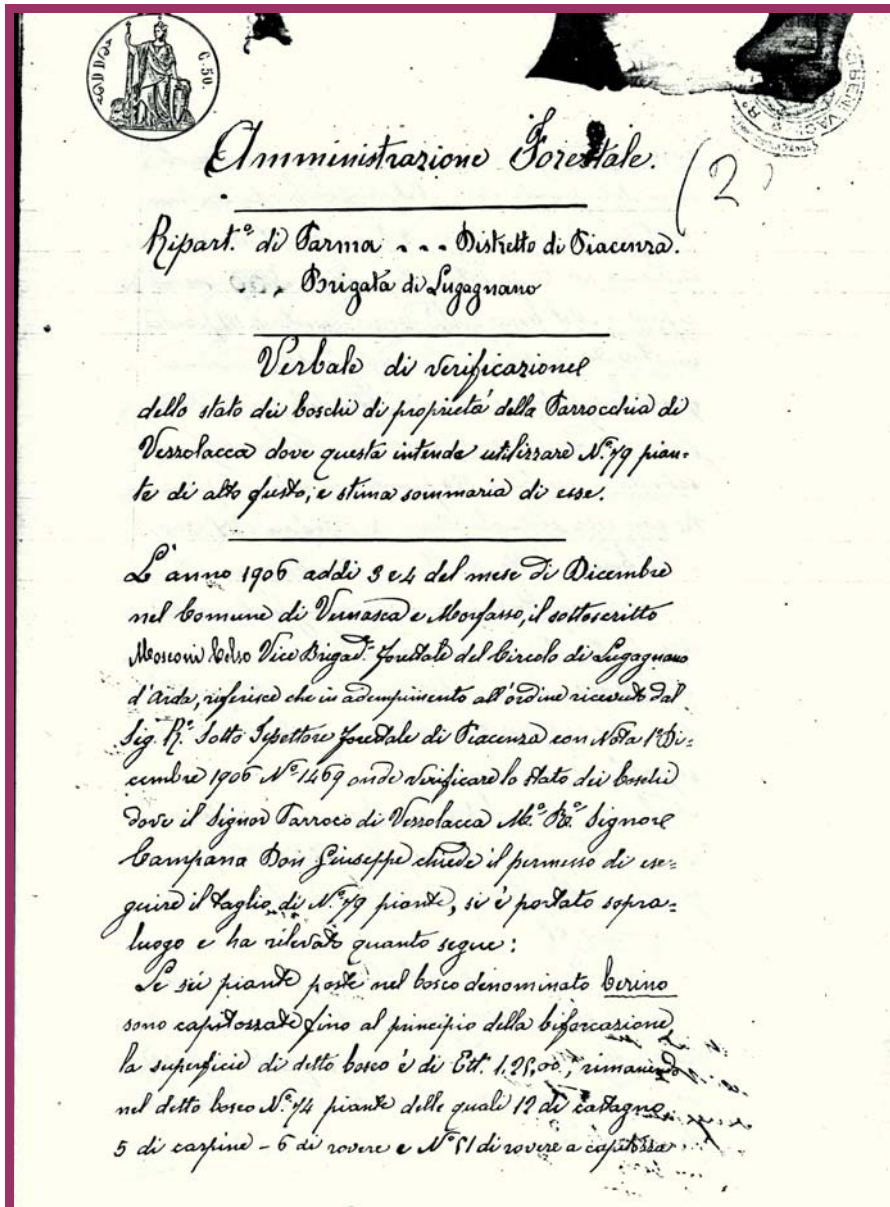 C. 50.
(2)
Amministrazione Forestale.
Ripart.º di Parma - - - Distretto di Piacenza.
Brigata di Lugagnano
Verbale di verificazione
dello stato dei boschi di proprietà della Parrocchia di
Vezzolacca dove questa intende utilizzare N.º 79 pian=
te di alto fusto, e stima sommaria di esse.
L'anno 1906 addi 3 e 4 del mese di Dicembre
nel Comune di Vernasca e Morfasso, il sottoscritto
Mosconi Celso Vice Brigad.re forestale del Circolo di Lugagnano
d'Arda, riferisce che in adempimento all'ordine ricevuto dal
Sig. R.º Sotto Ispettore forestale di Piacenza con Nota 1º Di=
cembre 1906 Nº 1469 onde verificare lo stato dei boschi
dove il Signor Parroco di Vezzolacca M.º R.º Signore
Campana Don Giuseppe chiede il permesso di ese=
guire il taglio di N.º 79 piante, si è portato sopra=
luogo e ha rilevato quanto segue:
Le sei piante poste nel bosco denominato Cerino
sono capitozzate fino al principio della biforcazione,
la superficie di detto bosco è di Ett. 1.25,00, rimanendo
nel detto bosco N.º 74 piante delle quali 12 di castagno,
5 di carpine - 6 di rovere e Nº 51 di rovere a capitozza